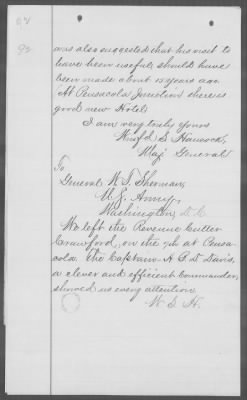 92
was also suggested that his visit to
have been useful, should have
been made about 15 years ago.
At Pensacola Junction there is
good new Hotel.
I am very truly yours
Winf'd S. Hancock,
Maj. General
To
General W. T. Sherman,
U. S. Army,
Washington, D. C.
We left the Revenue Cutter
Crawford, on the 7th at Pensa-
cola. The Captain A. B. Davis,
a clever and efficient commander,
showed us every attention.
W. S. H.